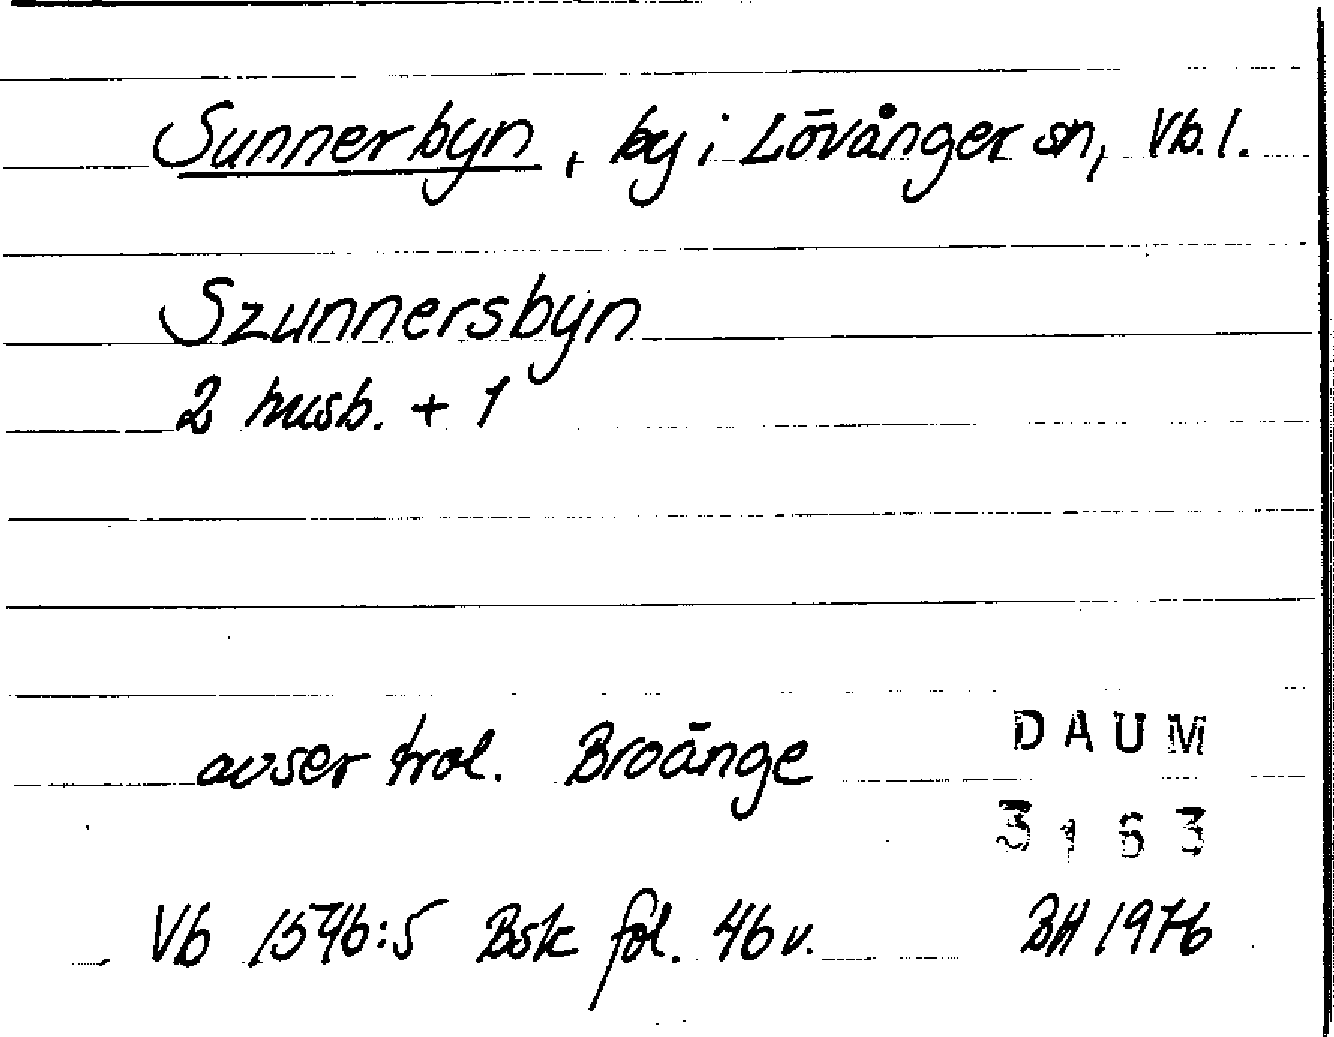 Sunnerbyn, by i Lövånger sn, Vb. l.
Szunnersbyn
2 husb. + 1
avser trol. Broänge
DAUM
3163
Vb 1546:5 Bsk fol. 46 v. BH 1976